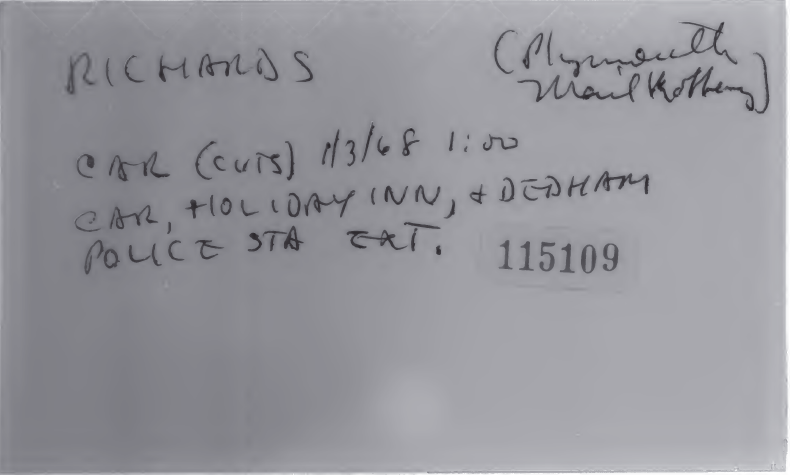 RICHARDS
(Plymouth
Mail Robbery)
CAR (CUTS) 1/3/68 1:00
CAR, HOLIDAY INN, + DEDHAM
POLICE STA EXT.
115109